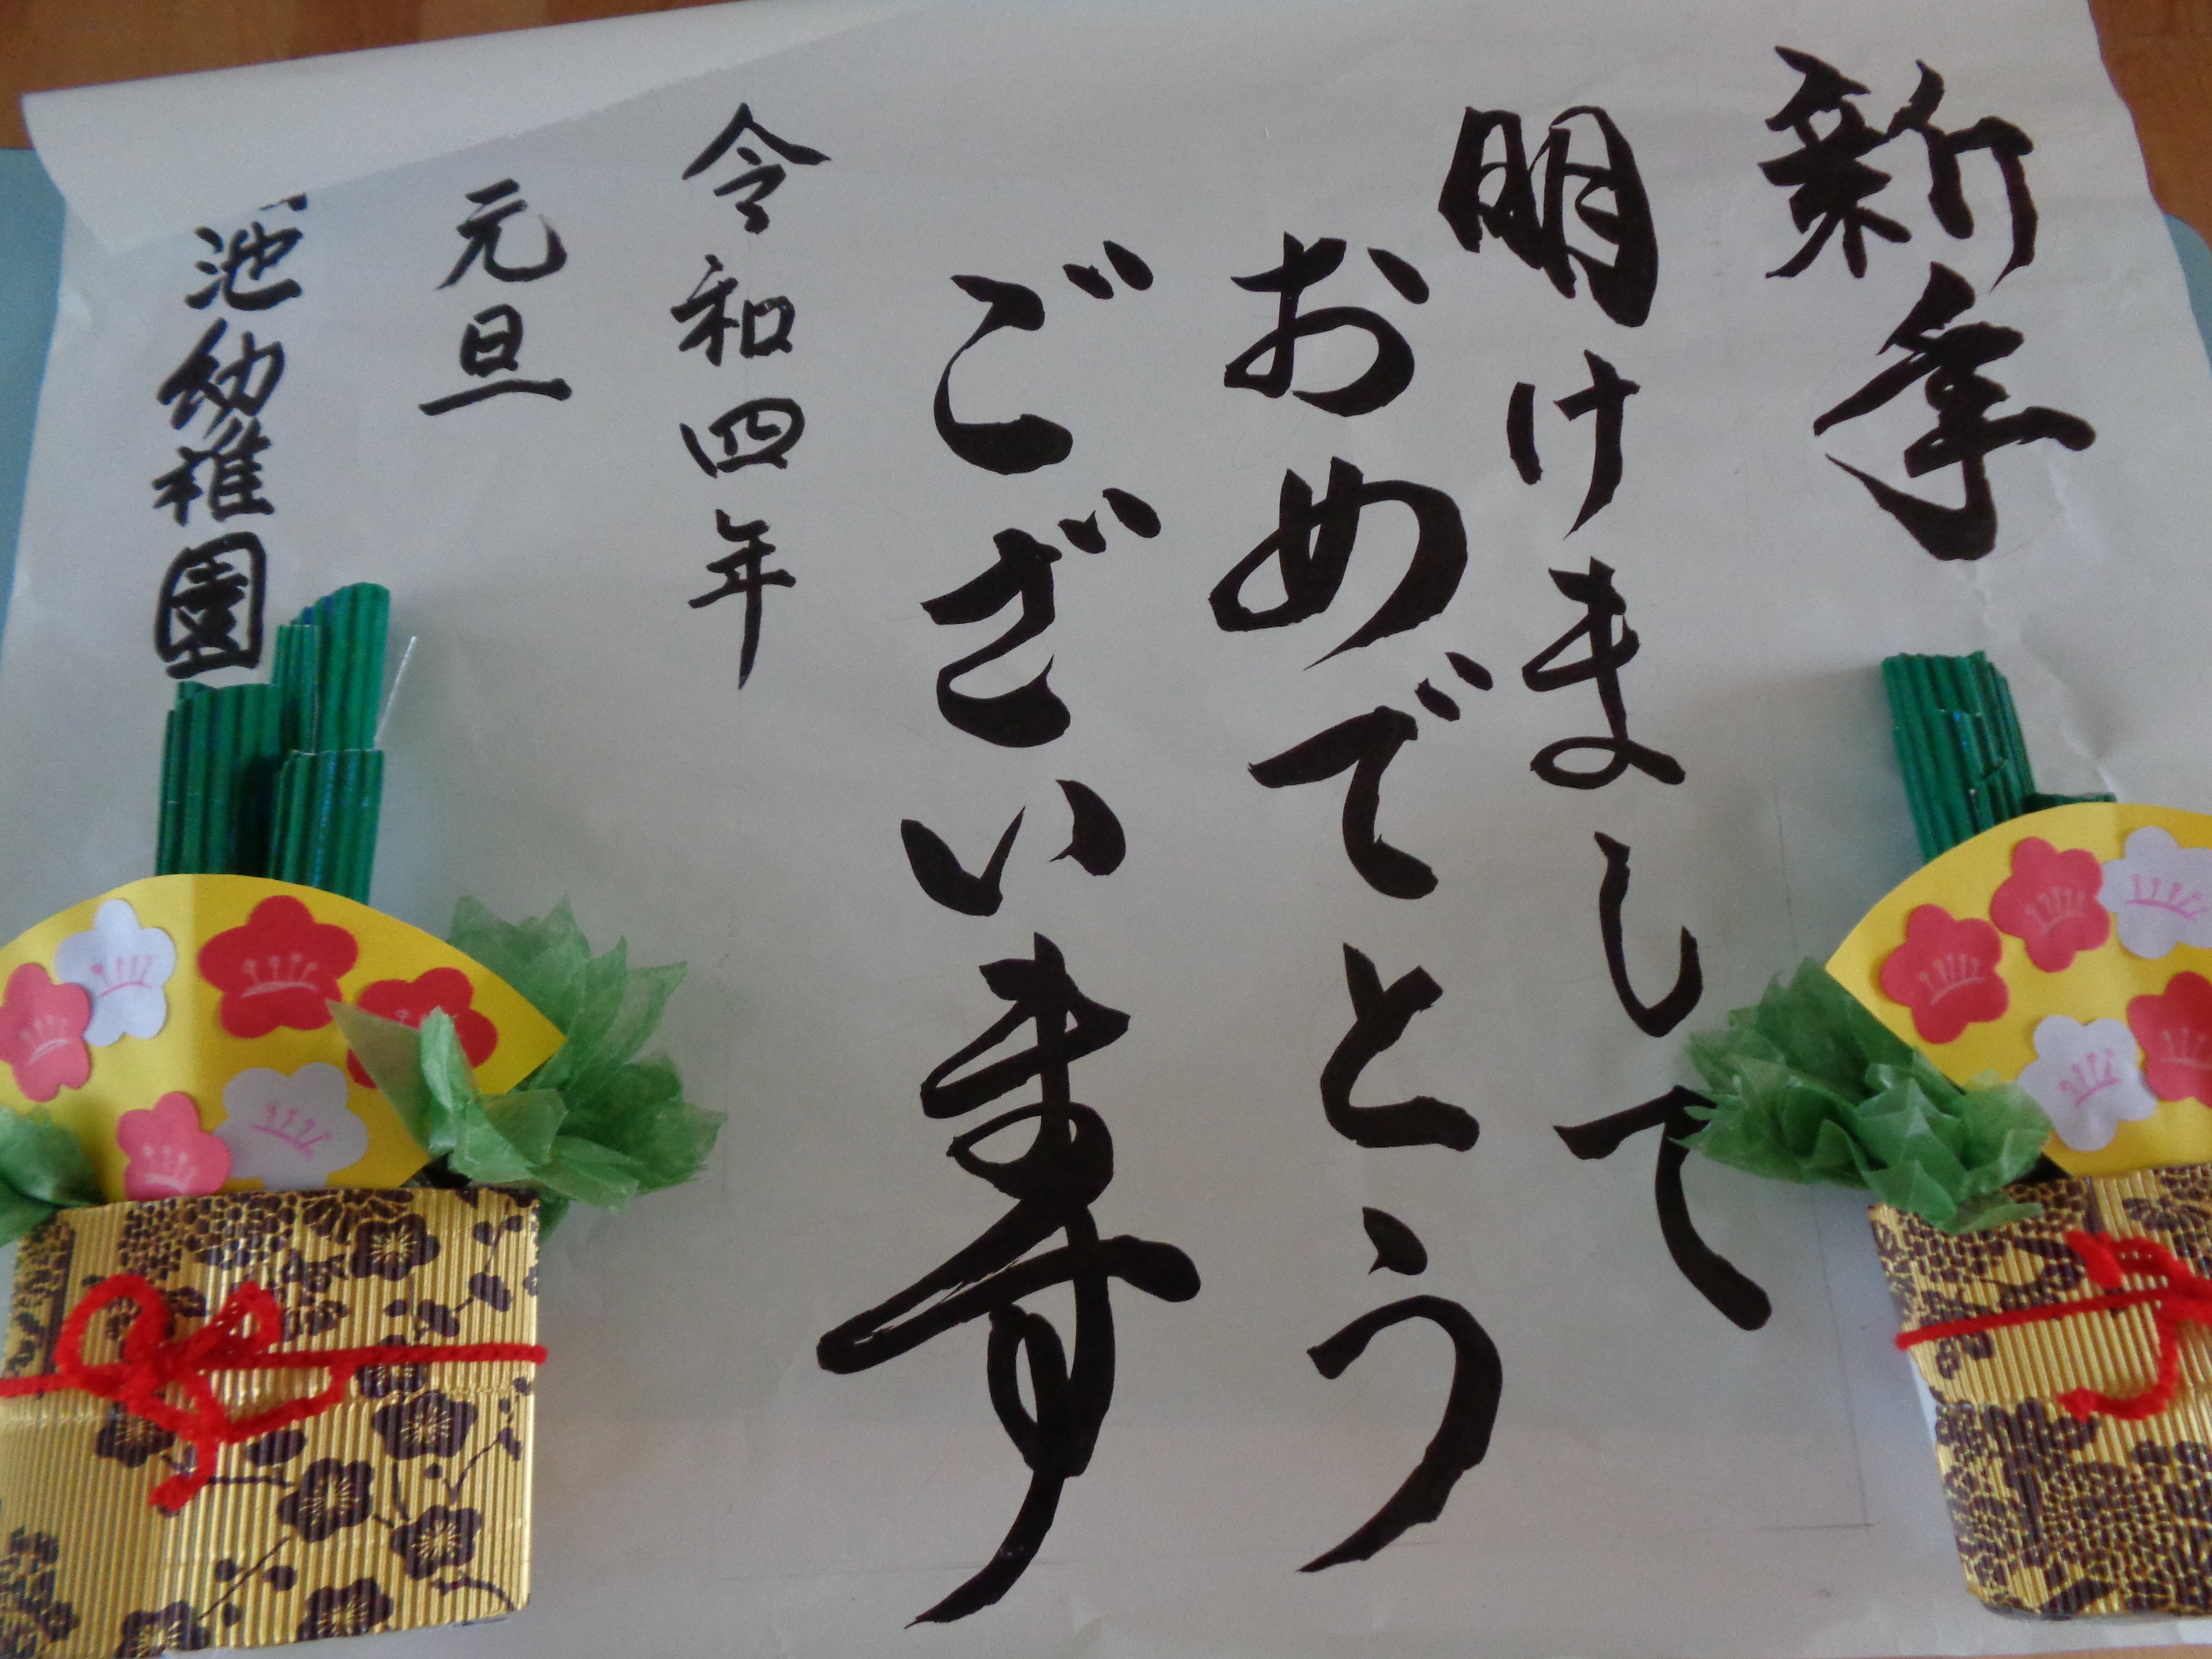 新年
明けまして
おめでとう
ございます
令和四年
元旦
池幼稚園